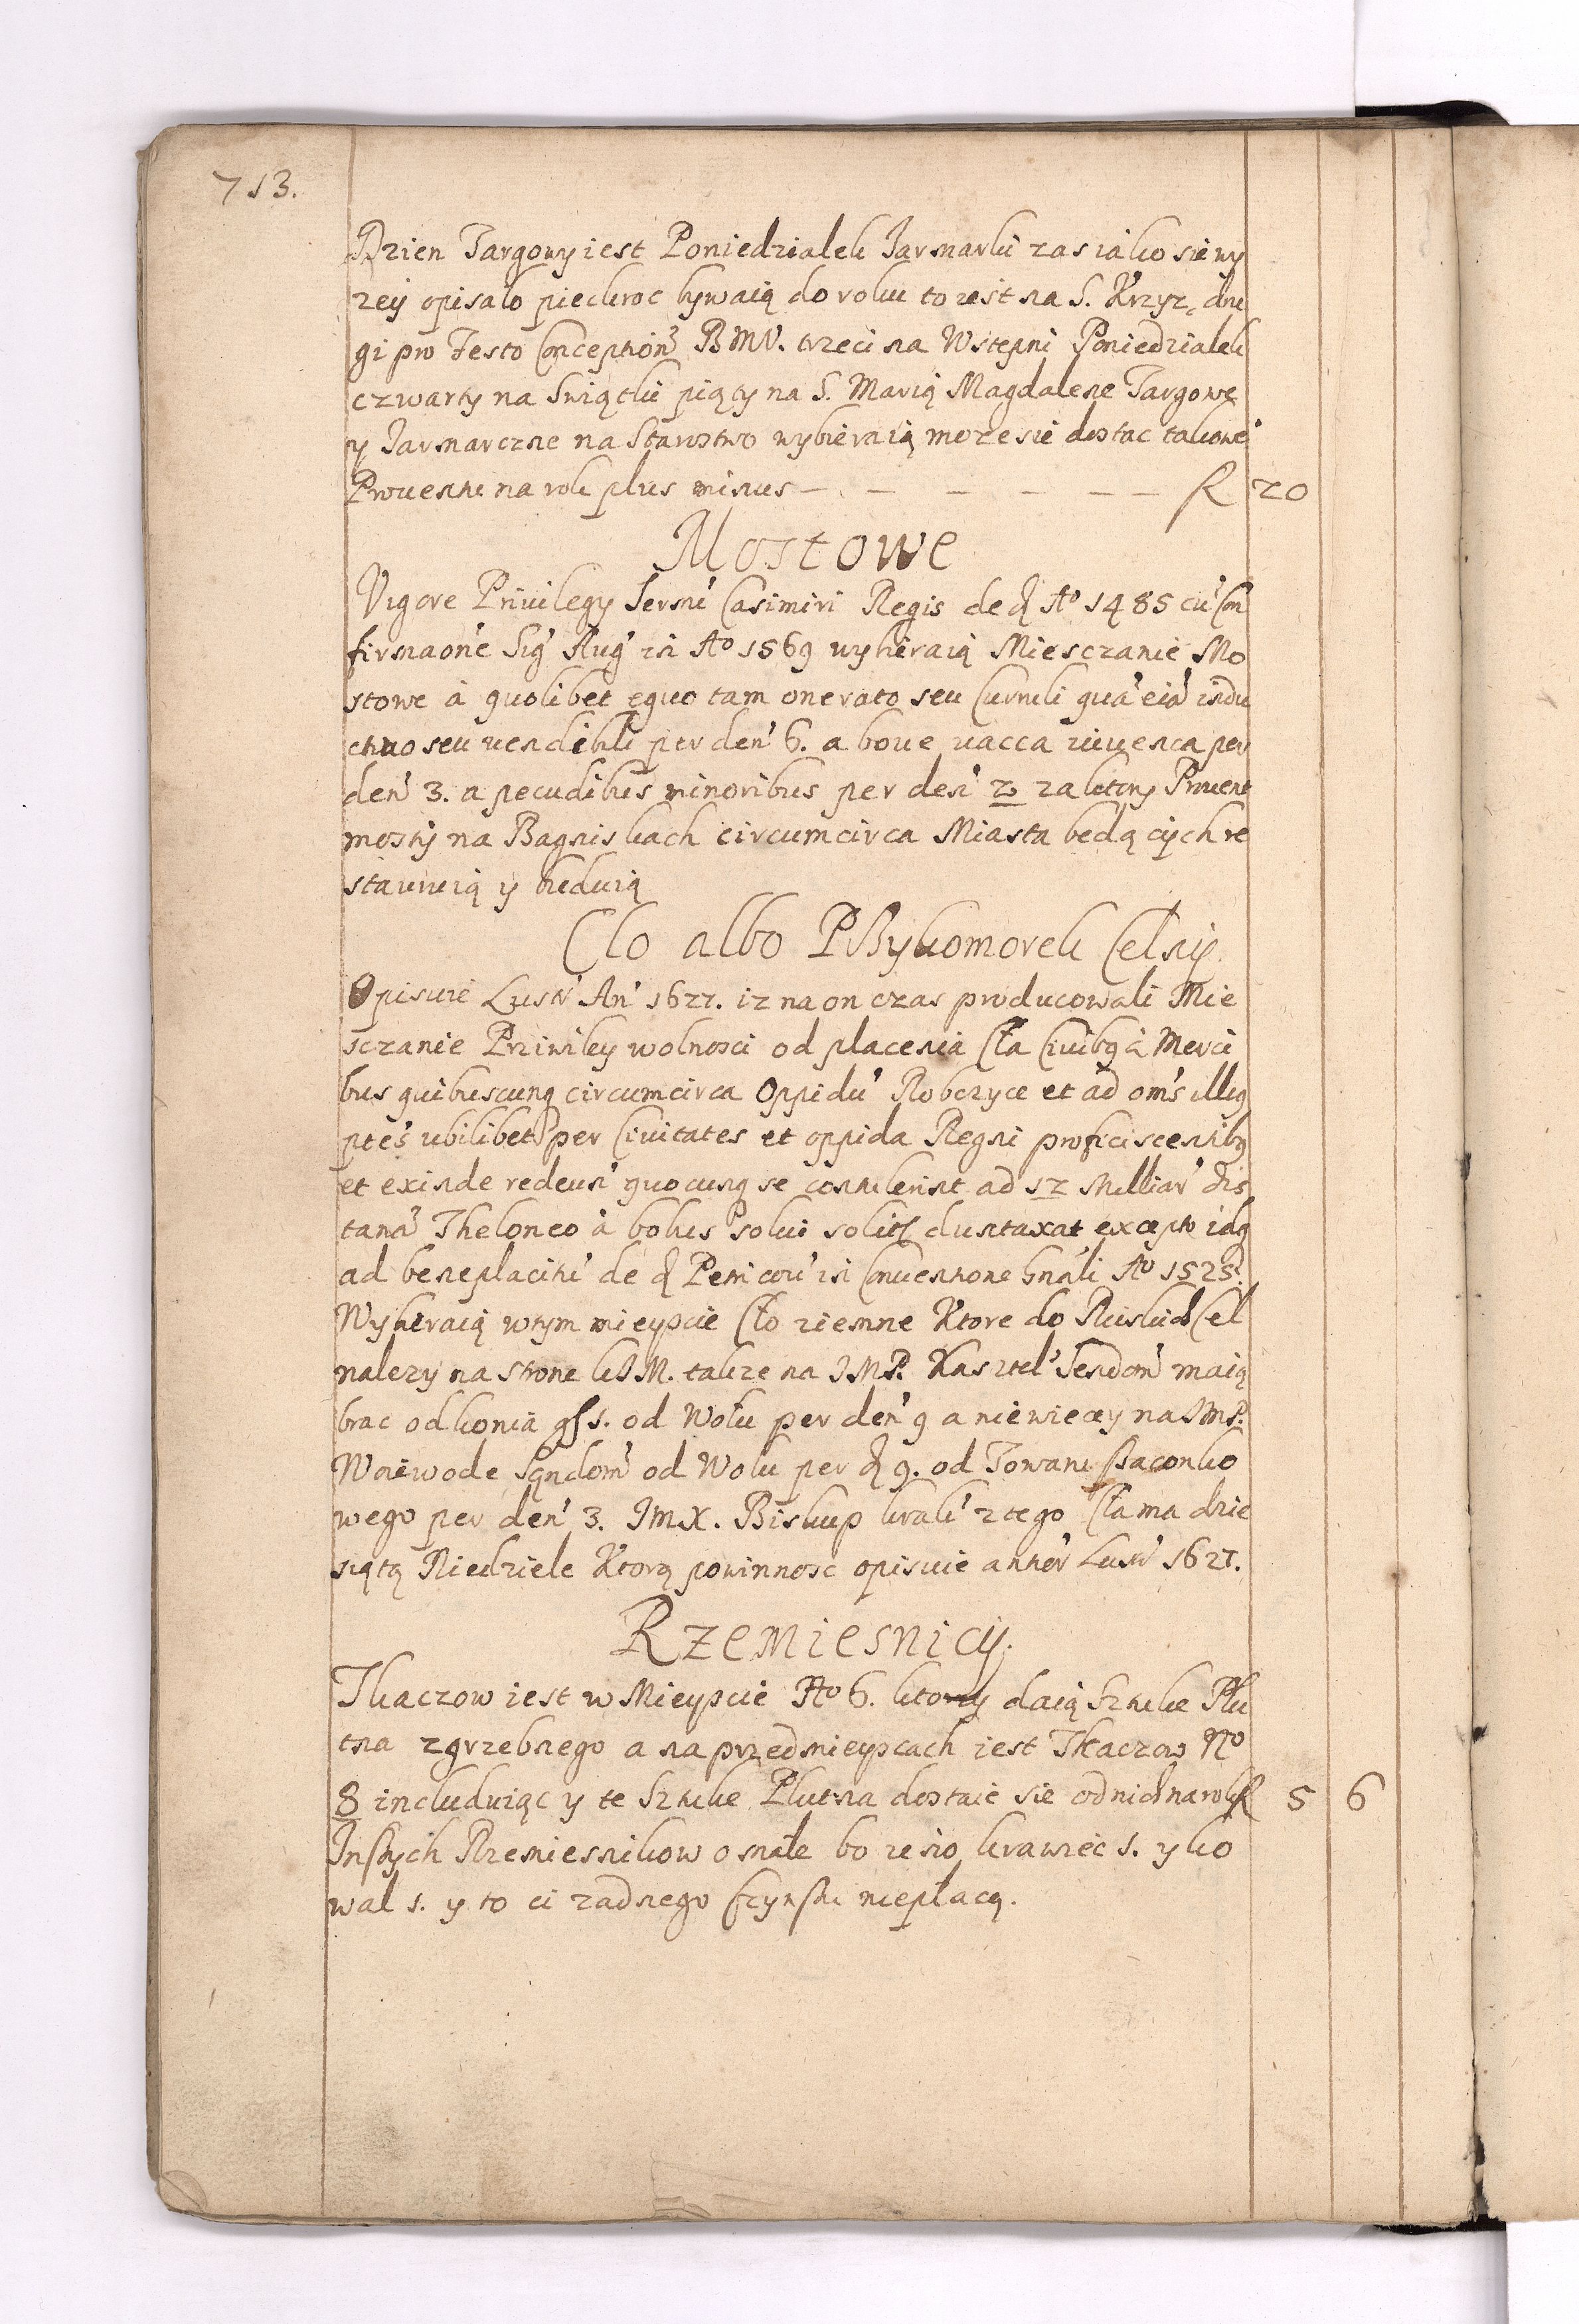 713.
Dzien Targowy iest Poniedzialek Jarmarki zas iako sie wy
zey opisalo pieckroc bywaią do roku to iest na S. Krzyz, dru
gi pro Festo Conception BMV. trzeci na Wstepni Poniedzialek
czwarty na Swiątki piąty na S. Marią Magdalene Targowe
y Jarmarczne na Starostwo wybieraią moze sie dostac takowe
Prouentu na rok plus minus — — — — — — R 20
Mostowe
Vigore Priuilegy Sersni Casimiri Regis de d Ao 1485 cu Con
firmaone Sig Aug in Ao 1569 wybieraią Miesczanie Mo
stowe à quolibet equo tam onerato seu Currili qua eia indu
ctiuo seu vendibili per den 6. a boue vacca iuuenca per
den 3. a pecudibus minoribus per den 2 za ktory Prouent
mosty na Bagniskach circumcirca Miasta będących re
stauruią y buduią
Clo albo PRzykomorek Celny.
Opisuie Lustr An 1627. iz na on czas producowali Mie
sczanie Priwiley wolnosci od placenia Cła Ciuibq à Merci
bus quibuscunq circumcirca Oppidu Robczyce et ad oms illiq
ptes ubilibet per Ciuitates et oppida Regni proficiscentibq
et exinde redeun quocunq se contulerint ad 12 Milliar dis
tana Theloneo à bobus solui solito duntaxat excepto idq
ad beneplacitu de d Petricou in Conuentione Gnali Ao 1525.
Wybieraią wtym mieyscie Cło ziemne Ktore do Ruskich Cel
nalezy na strone KJM. takze na JMP. Kasztel Sendom maią
brac od konia gs 1. od Wołu per den 9 a niewiecey na JMP.
Woiewode Sąndom od Wołu per d 9. od Towaru ssaconko
wego per den 3. JMX. Biskup krak z tego Cła ma dzie
siątą Niedziele Ktorą powinnosc opisuie anter Lustr 1627.
Rzemiesnicy.
Tkaczow iest w Mieyscie No 6. ktorzy daią Sztuke Płu
tna zgrzebnego a na przedmieyscach iest Tkaczow No
8 includuiąc y te Sztuke Plutna dostaie sie od nich na rok R 5 6
Inszych Rzemiesnikow o male bo ieno krawiec 1. y ko
wal 1. y to ci zadnego czynszu niepłacą.